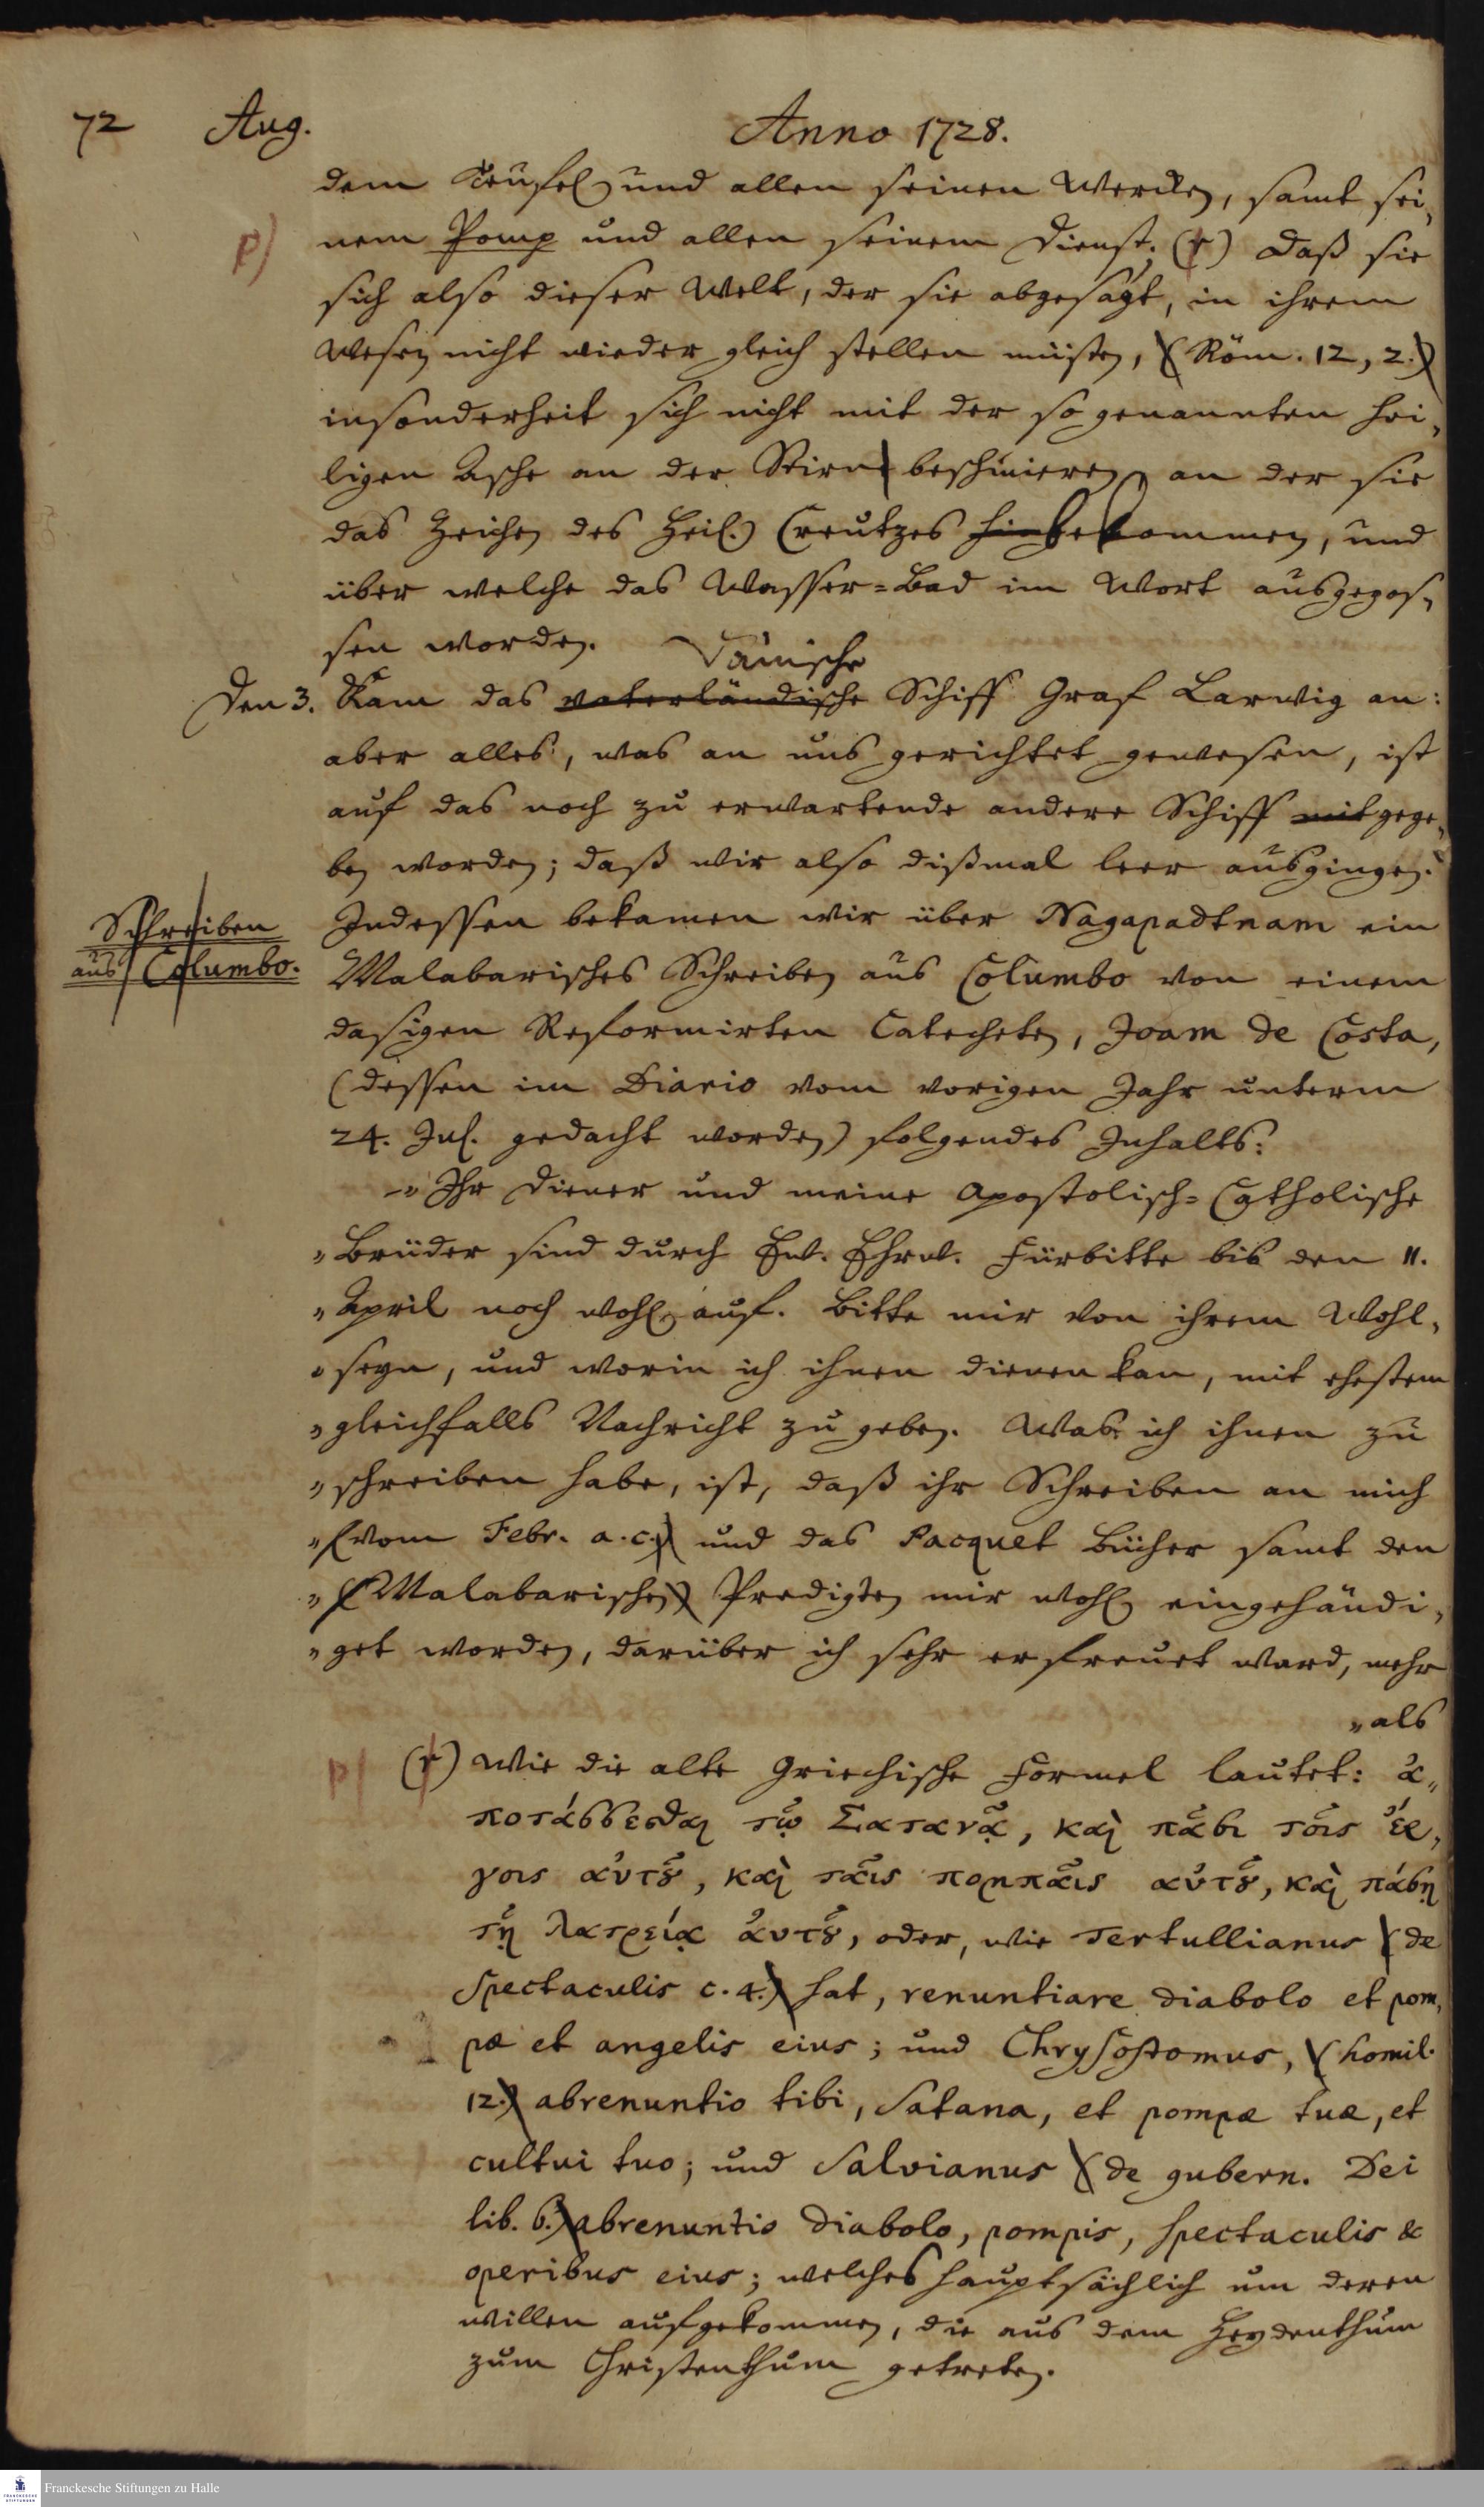 72 Aug. Anno 1728.
dem Teufel und allen seinen Wercken, samt sei-
p) nem Pomp und allen seinem Dienst. (r) Daß sie
sich also dieser Welt, der sie abgesagt, in ihrem
Wesen nicht wieder gleich stellen müsten, (Röm. 12, 2.)
insonderheit sich nicht mit der so genannten hei-
ligen Asche an der Stirn beschmieren, an der sie
das Zeichen des Heil. Creutzes hin bekommen, und
über welche das Wasser-Bad im Wort ausgegos-
sen worden.
Dänische
Den 3. Kam das vaterländische Schiff Graf Larwig an:
aber alles, was an uns gerichtet gewesen, ist
auf das noch zu erwartende andere Schiff mit gege-
ben worden; daß wir also dißmal leer ausgingen.
Schreiben
aus Columbo.
Indessen bekamen wir über Nagapadtnam ein
Malabarisches Schreiben aus Columbo von einem
dasigen Reformirten Catecheten, Joam de Costa,
(dessen im Diario vom vorigen Jahr unterm
24. Jul. gedacht worden) folgendes Inhalts:
„Ihr Diener und meine Apostolisch-Catholische
„Brüder sind durch Ew. Ehrw. Fürbitte bis den 11.
„April noch wohl auf. Bitte mir von ihrem Wohl-
„seyn, und worin ich ihnen dienen kan, mit ehestem
„gleichfalls Nachricht zu geben. Was ich ihnen zu
„schreiben habe, ist, daß ihr Schreiben an mich
„(vom Febr. a. c.) und das Pacquet Bücher samt den
„(Malabarischen) Predigten mir wohl eingehändi-
„get worden, darüber ich sehr erfreuet ward, mehr
„als
p) (r) Wie die alte Griechische Formel lautet: ἀ-
ποτάσσεσθαι τῷ Σατανᾷ, καὶ πᾶσι τοῖς ἔρ-
γοις αὐτȣ͂, καὶ ταῖς πομπαῖς αὐτȣ͂, καὶ πάσῃ
τῇ λατρείᾳ ἀυτȣ͂, oder, wie Tertullianus (de
Spectaculis c. 4.) hat, renuntiare diabolo et pom-
pæ et angelis eius; und Chrysostomus, (homil.
12.) abrenuntio tibi, Satana, et pompæ tuæ, et
cultui tuo; und Salvianus (de gubern. Dei
lib. 6.) abrenuntio diabolo, pompis, spectaculis &
operibus eius; welches hauptsächlich um deren
willen aufgekommen, die aus dem Heydenthum
zum Christenthum getreten.
Franckesche Stiftungen zu Halle